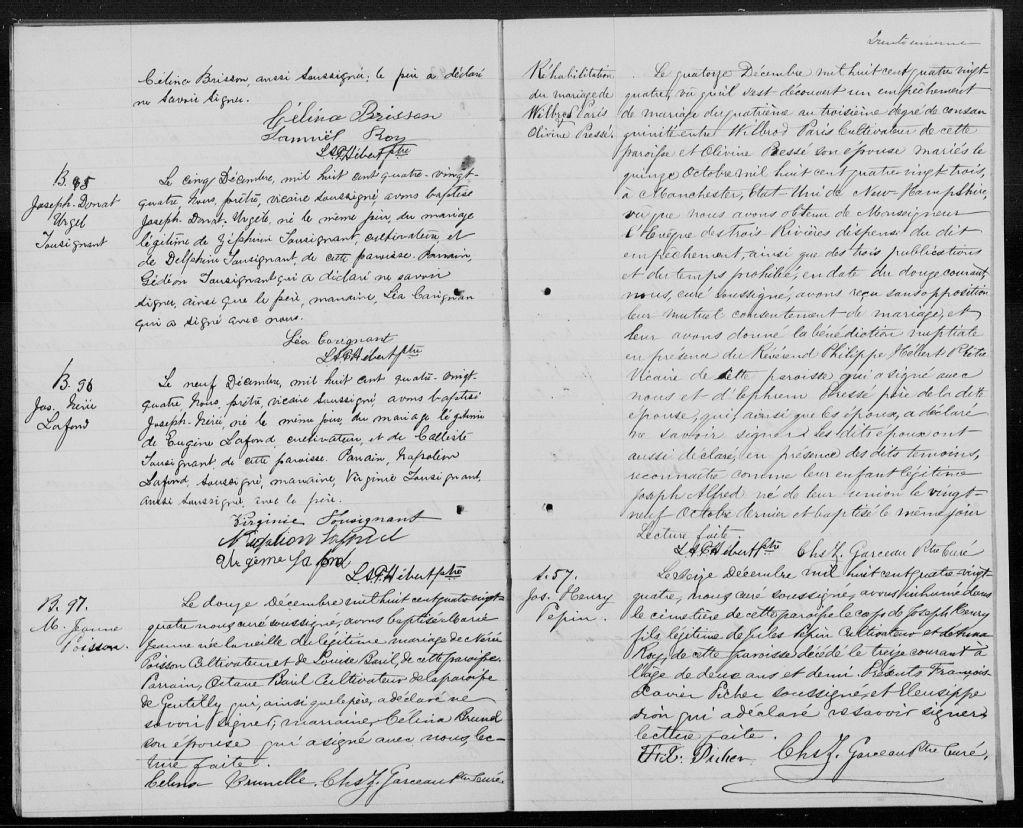 Célina Brisson, aussi soussigné; le père a déclaré
ne savoir signer.
Célina Brisson
Samuël Roy
L.A.P. Hébert ptre
B. 95
Joseph-Donat
Urgel
Tousignant
Le cinq Décembre, mil huit cent quatre-vingt-
quatre Nous, prêtre, vicaire soussigné avons baptisé
Joseph-Donat-Urgèle, né le même jour, du mariage
légitime de Zéphirin Tousignant, cultivateur, et
de Delphine Tousignant de cette paroisse. Parrain,
Gédéon Tousignant qui a déclaré ne savoir
signer, ainsi que le père, marraine, Léa Carignan
qui a signé avec nous.
Léa Carignant
L.A.P. Hébert ptre
B. 96
Jos. Néré
Lafond
Le neuf Décembre, mil huit cent quatre-vingt-
quatre Nous, prêtre, vicaire soussigné, avons baptisé
Joseph-Néré, né le même jour, du mariage légitime
de Eugène Lafond, cultivateur, et de Calliste
Tousignant, de cette paroisse. Parrain, Napoléon
Lafond, soussigné, marraine, Virginie Tousignant,
aussi soussignée, avec le père.
Virginie Tousignant
Napoléon Lafond
L.A.P. Hébert ptre
B. 97.
M. Jeanne
Poisson.
Le douze Décembre mil huit cent quatre vingt-
quatre nous curé soussigné, avons baptisé Marie
Jeanne née la veille du légitime mariage de
Poisson Cultivateur et de Louise Baril, de cette paroisse.
Parrain, Octave Baril Cultivateur de la paroisse
de Gentilly qui, ainsi que le père, a déclaré ne
savoir signer, marraine Celina Brunel
son épouse qui a signé avec nous, lec-
ture faite.
Celina Brunelle. Chs Z. Garceau Ptre Curé.
Trente unième
Réhabilitation
du mariage de
Wilbrod Paris
& Olivine Pressé.
Le quatorze Décembre mil huit cent quatre vingt-
quatre, vû qu'il s'est découvert un empêchement
de mariage du quatrième au troisième degré de consan
guinité entre Wilbrod Paris Cultivateur de cette
paroisse et Olivine Pressé son épouse mariés le
quinze Octobre mil huit cent quatre vingt trois,
à Manchester, Etat Uni de New-Hampshire,
vû que nous avons obtenu de Monseigneur
l'Evêque des trois Rivières dispense du dit
empêchement, ainsi que des trois publications
et du temps prohibé, en date du douze courant,
nous, curé soussigné, avons reçu sans opposition
leur mutuel consentement de mariage, et
leur avons donné la bénédiction nuptiale
en présence du Révérend Philippe Hébert Prêtre
Vicaire de cette paroisse qui a signé avec
nous et d'Ephrem Pressé père de la dite
épouse, qui ainsi que les époux, a déclaré
ne savoir signer. Les dits époux ont
aussi déclaré, en présence des dits témoins,
reconnaître comme leur enfant légitime
Joseph Alfred né de leur union le vingt-
neuf Octobre dernier et baptisé le même jour
Lecture faite.
L.A.P. Hébert ptre Chs Z. Garceau Ptre Curé
S. 57.
Jos. Henry
Pepin.
Le seize Décembre mil huit cent quatre-vingt
quatre, nous curé soussigné, avons inhumé dans
le cimetière de cette paroisse le corps de Joseph Henry
fils légitime de Jules Pepin Cultivateur et de
Roy, de cette paroisse décédé le treize courant à
l'âge de deux ans et demi Présents François
Xavier Picher soussigné, et Eleusippe
Dion qui a déclaré ne savoir signer
lecture faite.
F.X. Picher Chs Z. Garceau Ptre Curé.